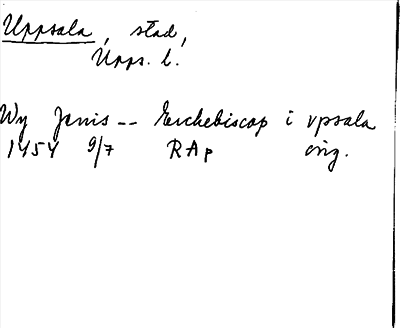 Uppsala, stad,
Upps. l.
Wy Jenis -- Erchebiscop i vpsala
1454 9/7 RAp orig.